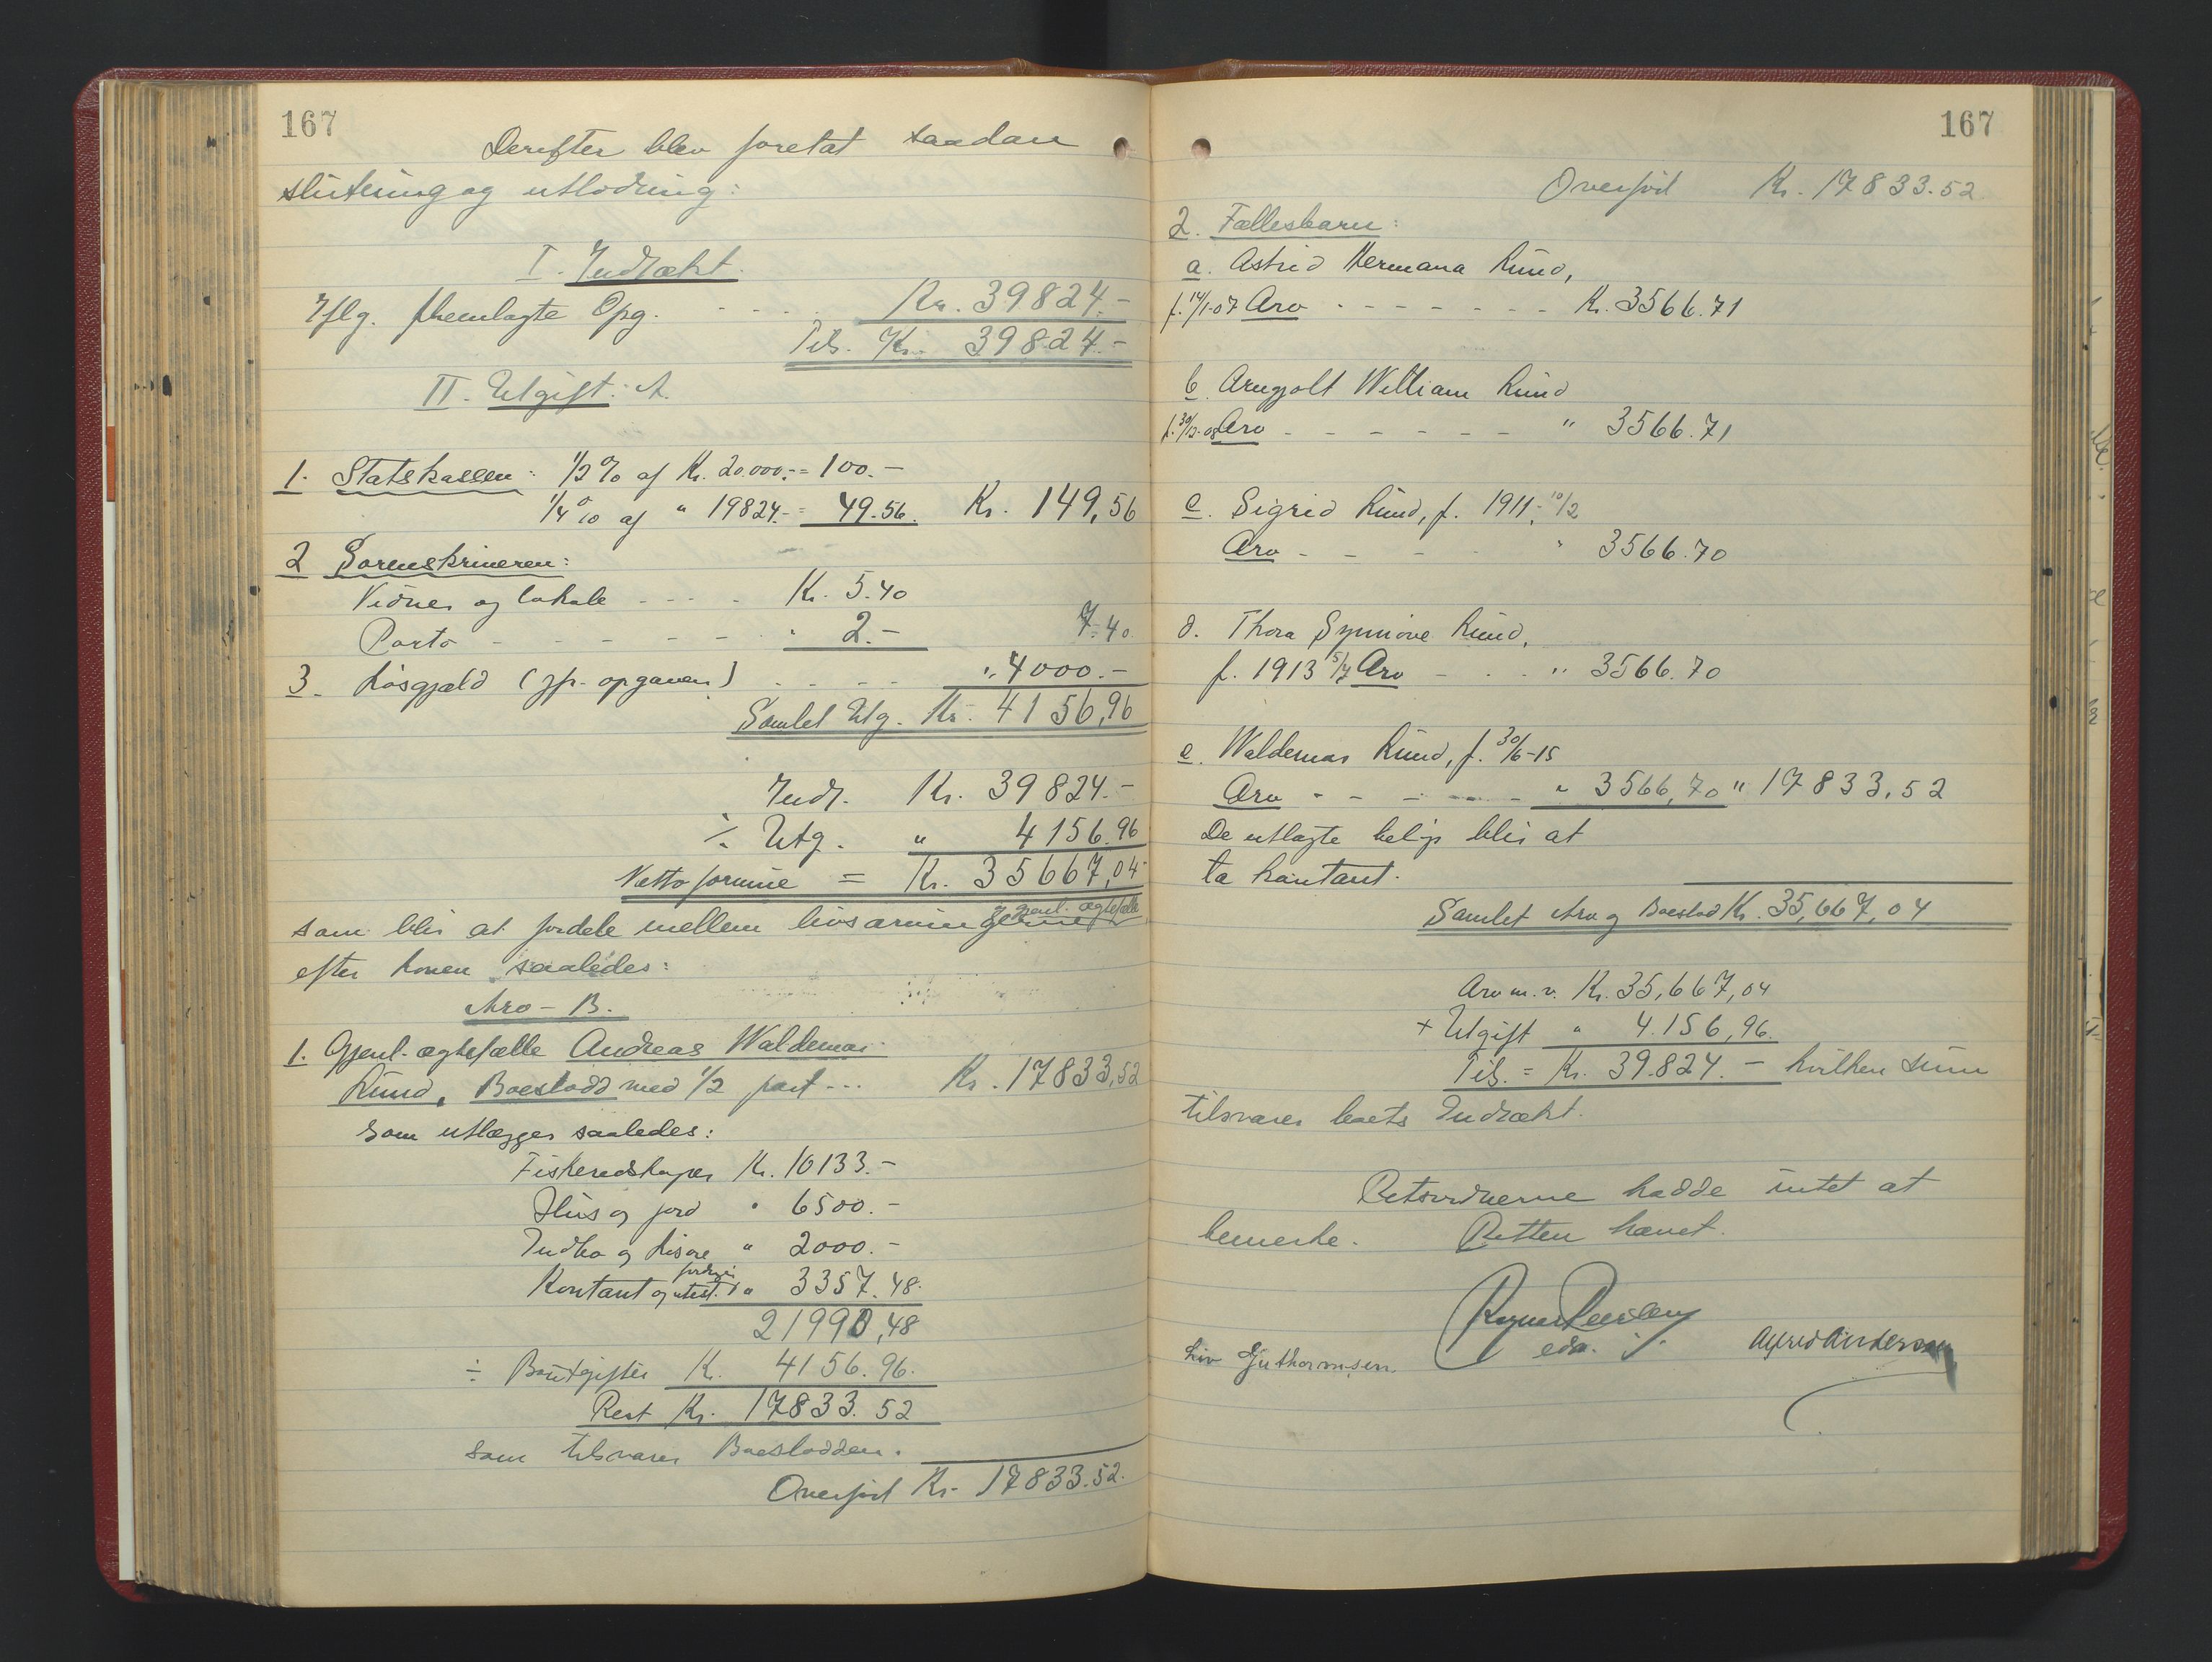 167
Derefter blev foretat saadan
slutning og utlodning:
I. Indtækt.
Iflg. fremlagte Opg. - - - - Kr. 39824.-
Tils. Kr. 39824.-
II. Utgift: A.
1. Statskassen: 1/2 % af Kr. 20.000.- = 100.-
1/4 % af " 19824.- = 49.56. Kr. 149,56
2 Sorenskriveren:
Vidner og lokale - - - - Kr. 5.40
Porto - - - - - - " 2.- 7.40
3. Løsgjæld (jfr. opgaven) - - - - " 4000.-
Samlet Utg. Kr. 4156,96
Indt. Kr. 39824.-
÷ Utg. " 4156.96
Nettoformue = Kr. 35667,04
som blir at fordele mellem livsarvingerne & gjenl. ægtefælle
efter loven saaledes:
Arv - B.
1. Gjenl. ægtefælle Andreas Waldemar
Lund, Boeslodd med 1/2 part - - - Kr. 17833,52
som utlægges saaledes:
Fiskeredskaper Kr. 10133.-
Hus og jord " 6500.-
Indbo og løsøre " 2000.-
Kontant og utest. fordring " 3357.48.
21990,48
÷ Boutgifter K. 4156.96.
Rest Kr. 17833.52
som tilsvarer Boeslodden.
Overført Kr. 17833.52.
167
Overført Kr. 17833.52
2. Fællesbarn:
a. Astrid Hermana Lund,
f. 14/1-07 Arv - - - - - - - K. 3566.71
b. Arngjolt William Lund
f. 30/12-08 Arv - - - - - - - " 3566.71
c. Sigrid Lund, f. 1911, 10/2
Arv - - - - " 3566.70
d. Thora Synnøve Lund,
f. 1913 5/7 Arv - - - " 3566.70
e. Waldemar Lund, f. 30/6-15
Arv - - - - - " 3566,70 " 17833,52
De utlagte beløp blir at
ta kontant.
Samlet Arv og Boeslod Kr. 35,667,04
Arv m.v. Kr. 35,667,04
+ Utgift " 4.156,96.
Tils. = Kr. 39.824.- hvilken sum
tilsvarer boets Indtækt.
Retsvidnerne hadde intet at
bemerke. Retten hævet.
edsv.
Liv Guthormsen. Alfred Andersen